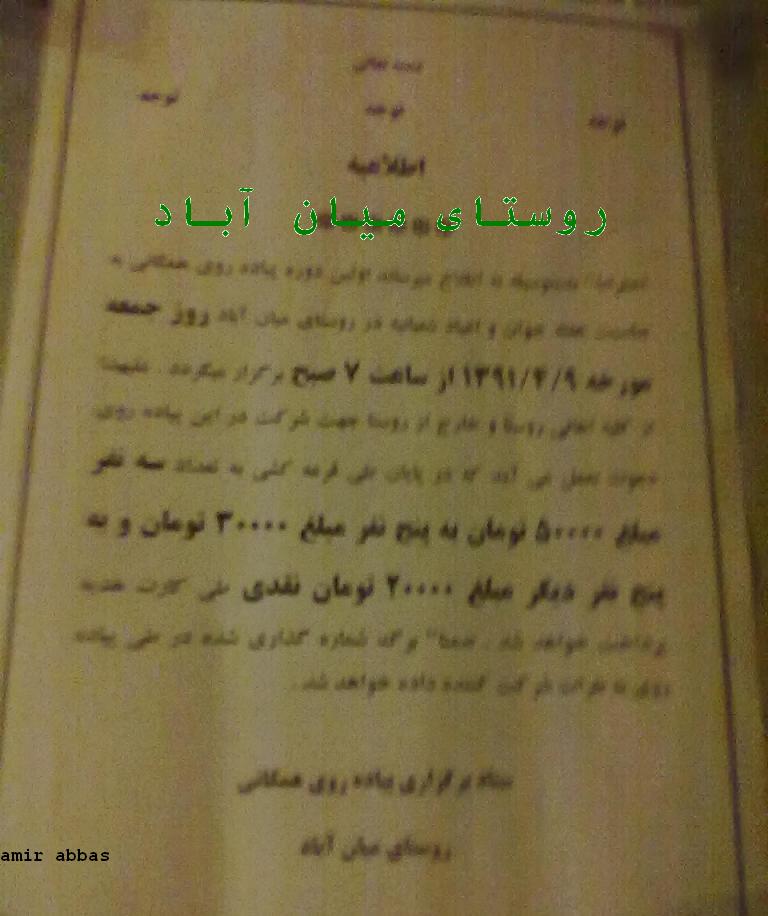 بسمه تعالی
توجه توجه توجه
اطلاعیه
روستای میان آباد
احتراما" بدینوسیله به اطلاع میرساند اولین دوره پیاده روی همگانی به
مناسبت هفته جوان و اعیاد شعبانیه در روستای میان آباد روز جمعه
مورخه ۱۳۹۱/۴/۹ از ساعت ۷ صبح برگزار میگردد .
از کلیه اهالی روستا و خارج از روستا جهت شرکت در این پیاده روی
دعوت بعمل می آید که در پایان طی قرعه کشی به تعداد سه نفر
مبلغ ۵۰۰۰۰ تومان به پنج نفر مبلغ ۳۰۰۰۰ تومان و به
پنج نفر دیگر مبلغ ۲۰۰۰۰ تومان نقدی طی کارت هدیه
پرداخت خواهد شد . ضمنا" برگه شماره گذاری شده در طی پیاده
روی به نفرات شرکت کننده داده خواهد شد .
ستاد برگزاری پیاده روی همگانی
روستای میان آباد
amir abbas